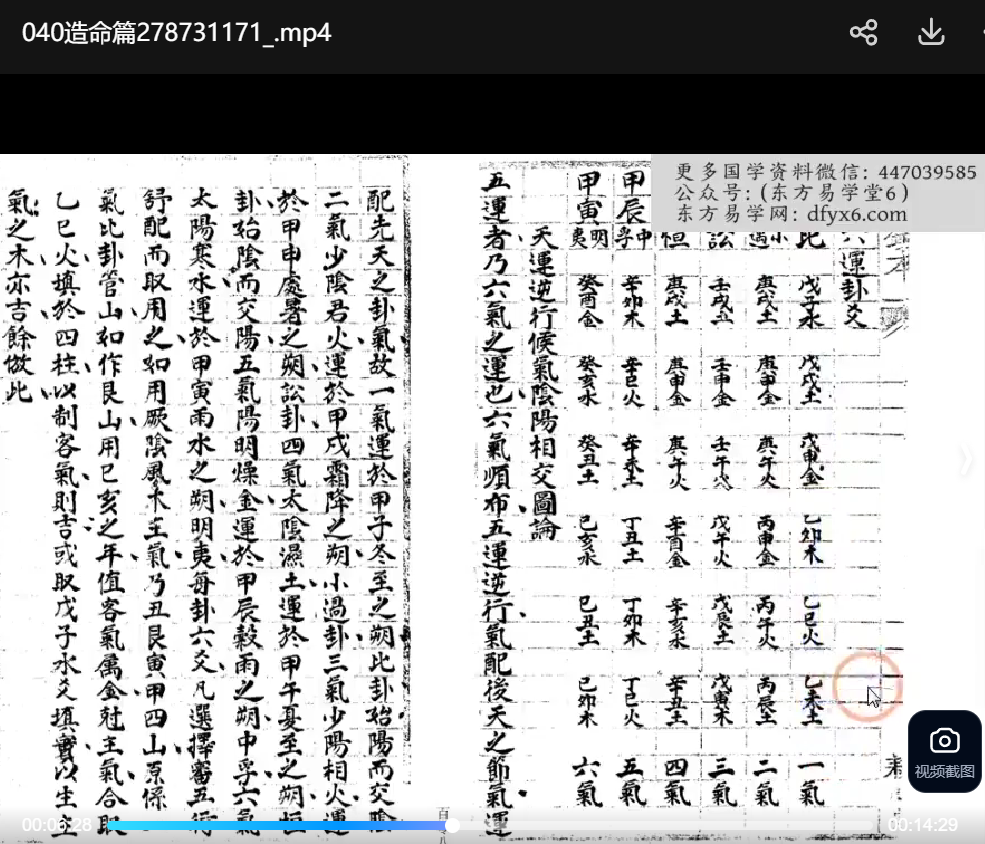 040造命篇278731171_.mp4
更多国学资料微信: 447039585
公众号: (东方易学堂6)
东方易学网: dfyx6.com
六運卦爻
比 戊子水 戊戌土 戊申金 乙卯木 乙巳火 乙未土 一氣
小過 庚戌土 庚申金 庚午火 丙申金 丙午火 丙辰土 二氣
訟 壬戌土 壬申金 壬午火 戊午火 戊辰土 戊寅木 三氣
恒 庚戌土 庚申金 庚午火 辛酉金 辛亥水 辛丑土 四氣
甲辰 中孚 辛卯木 辛巳火 辛未土 丁丑土 丁卯木 丁巳火 五氣
甲寅 明夷 癸酉金 癸亥水 癸丑土 己亥水 己丑土 己卯木 六氣
天運逆行候氣陰陽相交圖論
五運者乃六氣之運也六氣順布五運逆行氣配後天之節氣運
配先天之卦氣故一氣運於甲子冬至之朔比卦始陽而交陰
二氣少陰君火運於甲戌霜降之朔小過卦三氣少陽相火運
於甲申處暑之朔訟卦四氣太陰濕土運於甲午夏至之朔恒
卦始陰而交陽五氣陽明燥金運於甲辰穀雨之朔中孚六氣
太陽寒水運於甲寅雨水之朔明夷每卦六爻凡選擇審五行
舒配而取用之如用厥陰風木主氣乃丑艮寅甲四山原係
氣比卦管山如作艮山用巳亥之年值客氣屬金尅主氣合取
乙巳火填於四柱以制客氣則吉或取戊子水爻填實以生
氣之木亦吉餘倣此
视频截图
00:06:28
00:14:29